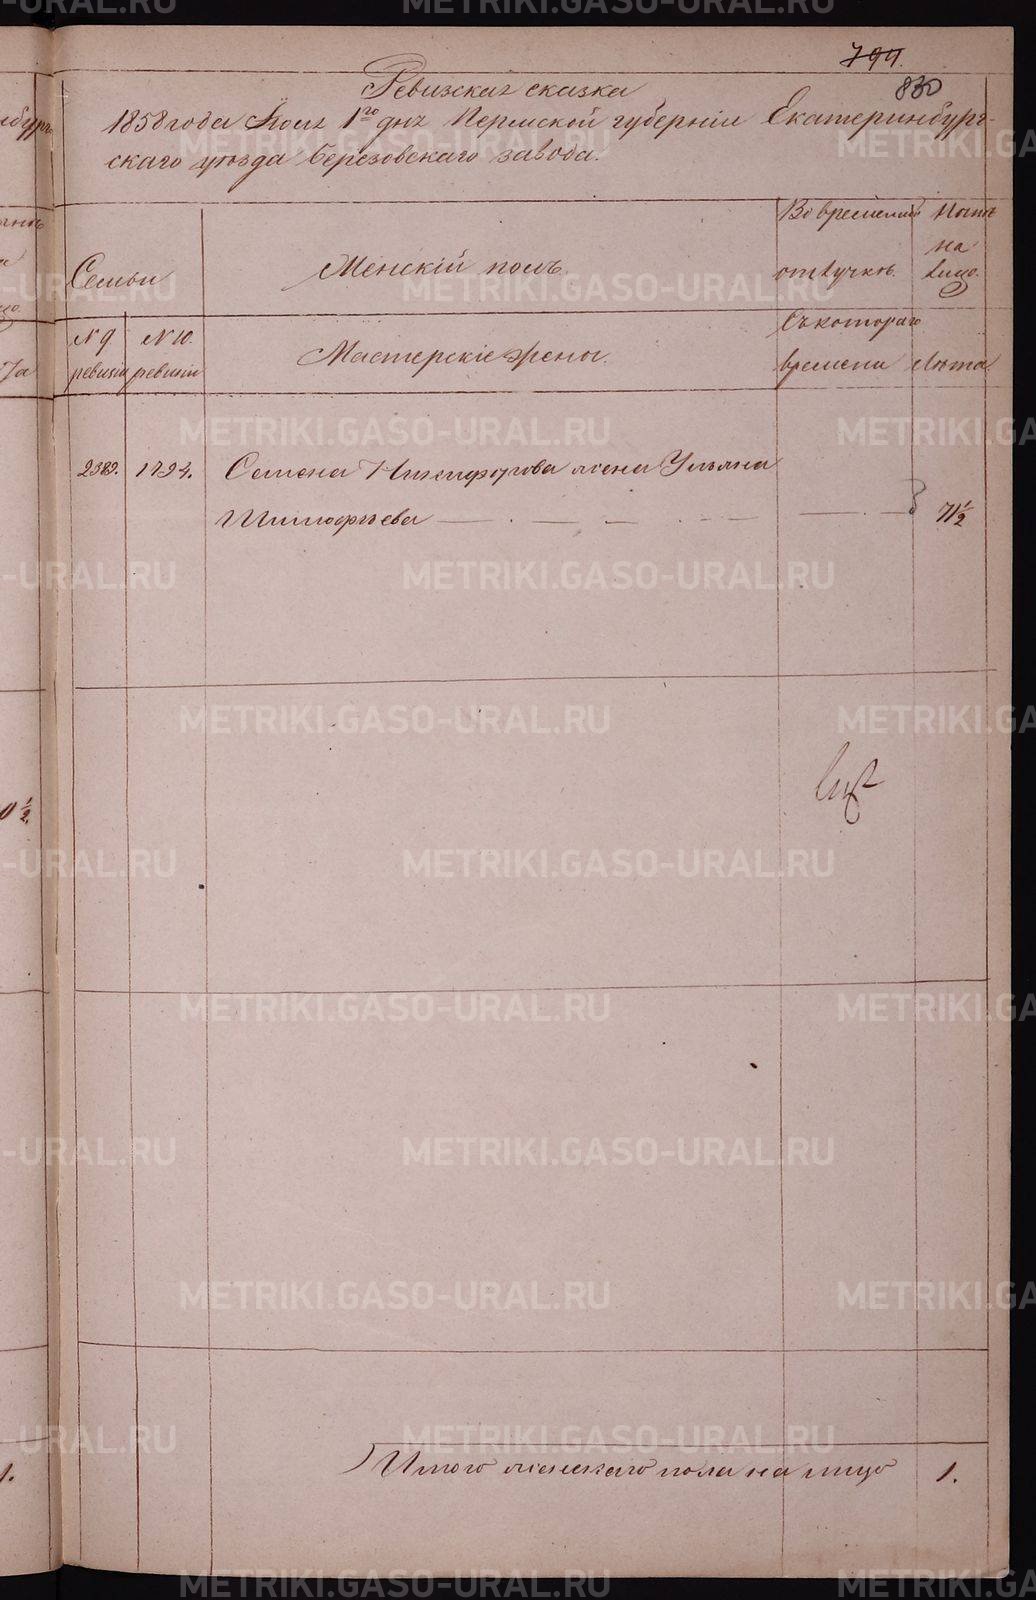 794.
830
Ревизская сказка
1858 года Iюня 1го дня Пермской губернiи Екатеринбург-
скаго уѣзда Березовскаго завода.
Семьи
Женскiй полъ.
Во временной отлучкѣ.
Нынѣ на лицо.
N 9. ревизiи
N 10. ревизiи
Мастерскiе жены.
Съ котораго времени
Лѣта
2389.
1794.
Семена Никифорова жена Ульяна
Тимофѣева
71 1/2
Итого женскаго пола на лицо
1.
0 1/2.
1.
METRIKI.GASO-URAL.RU